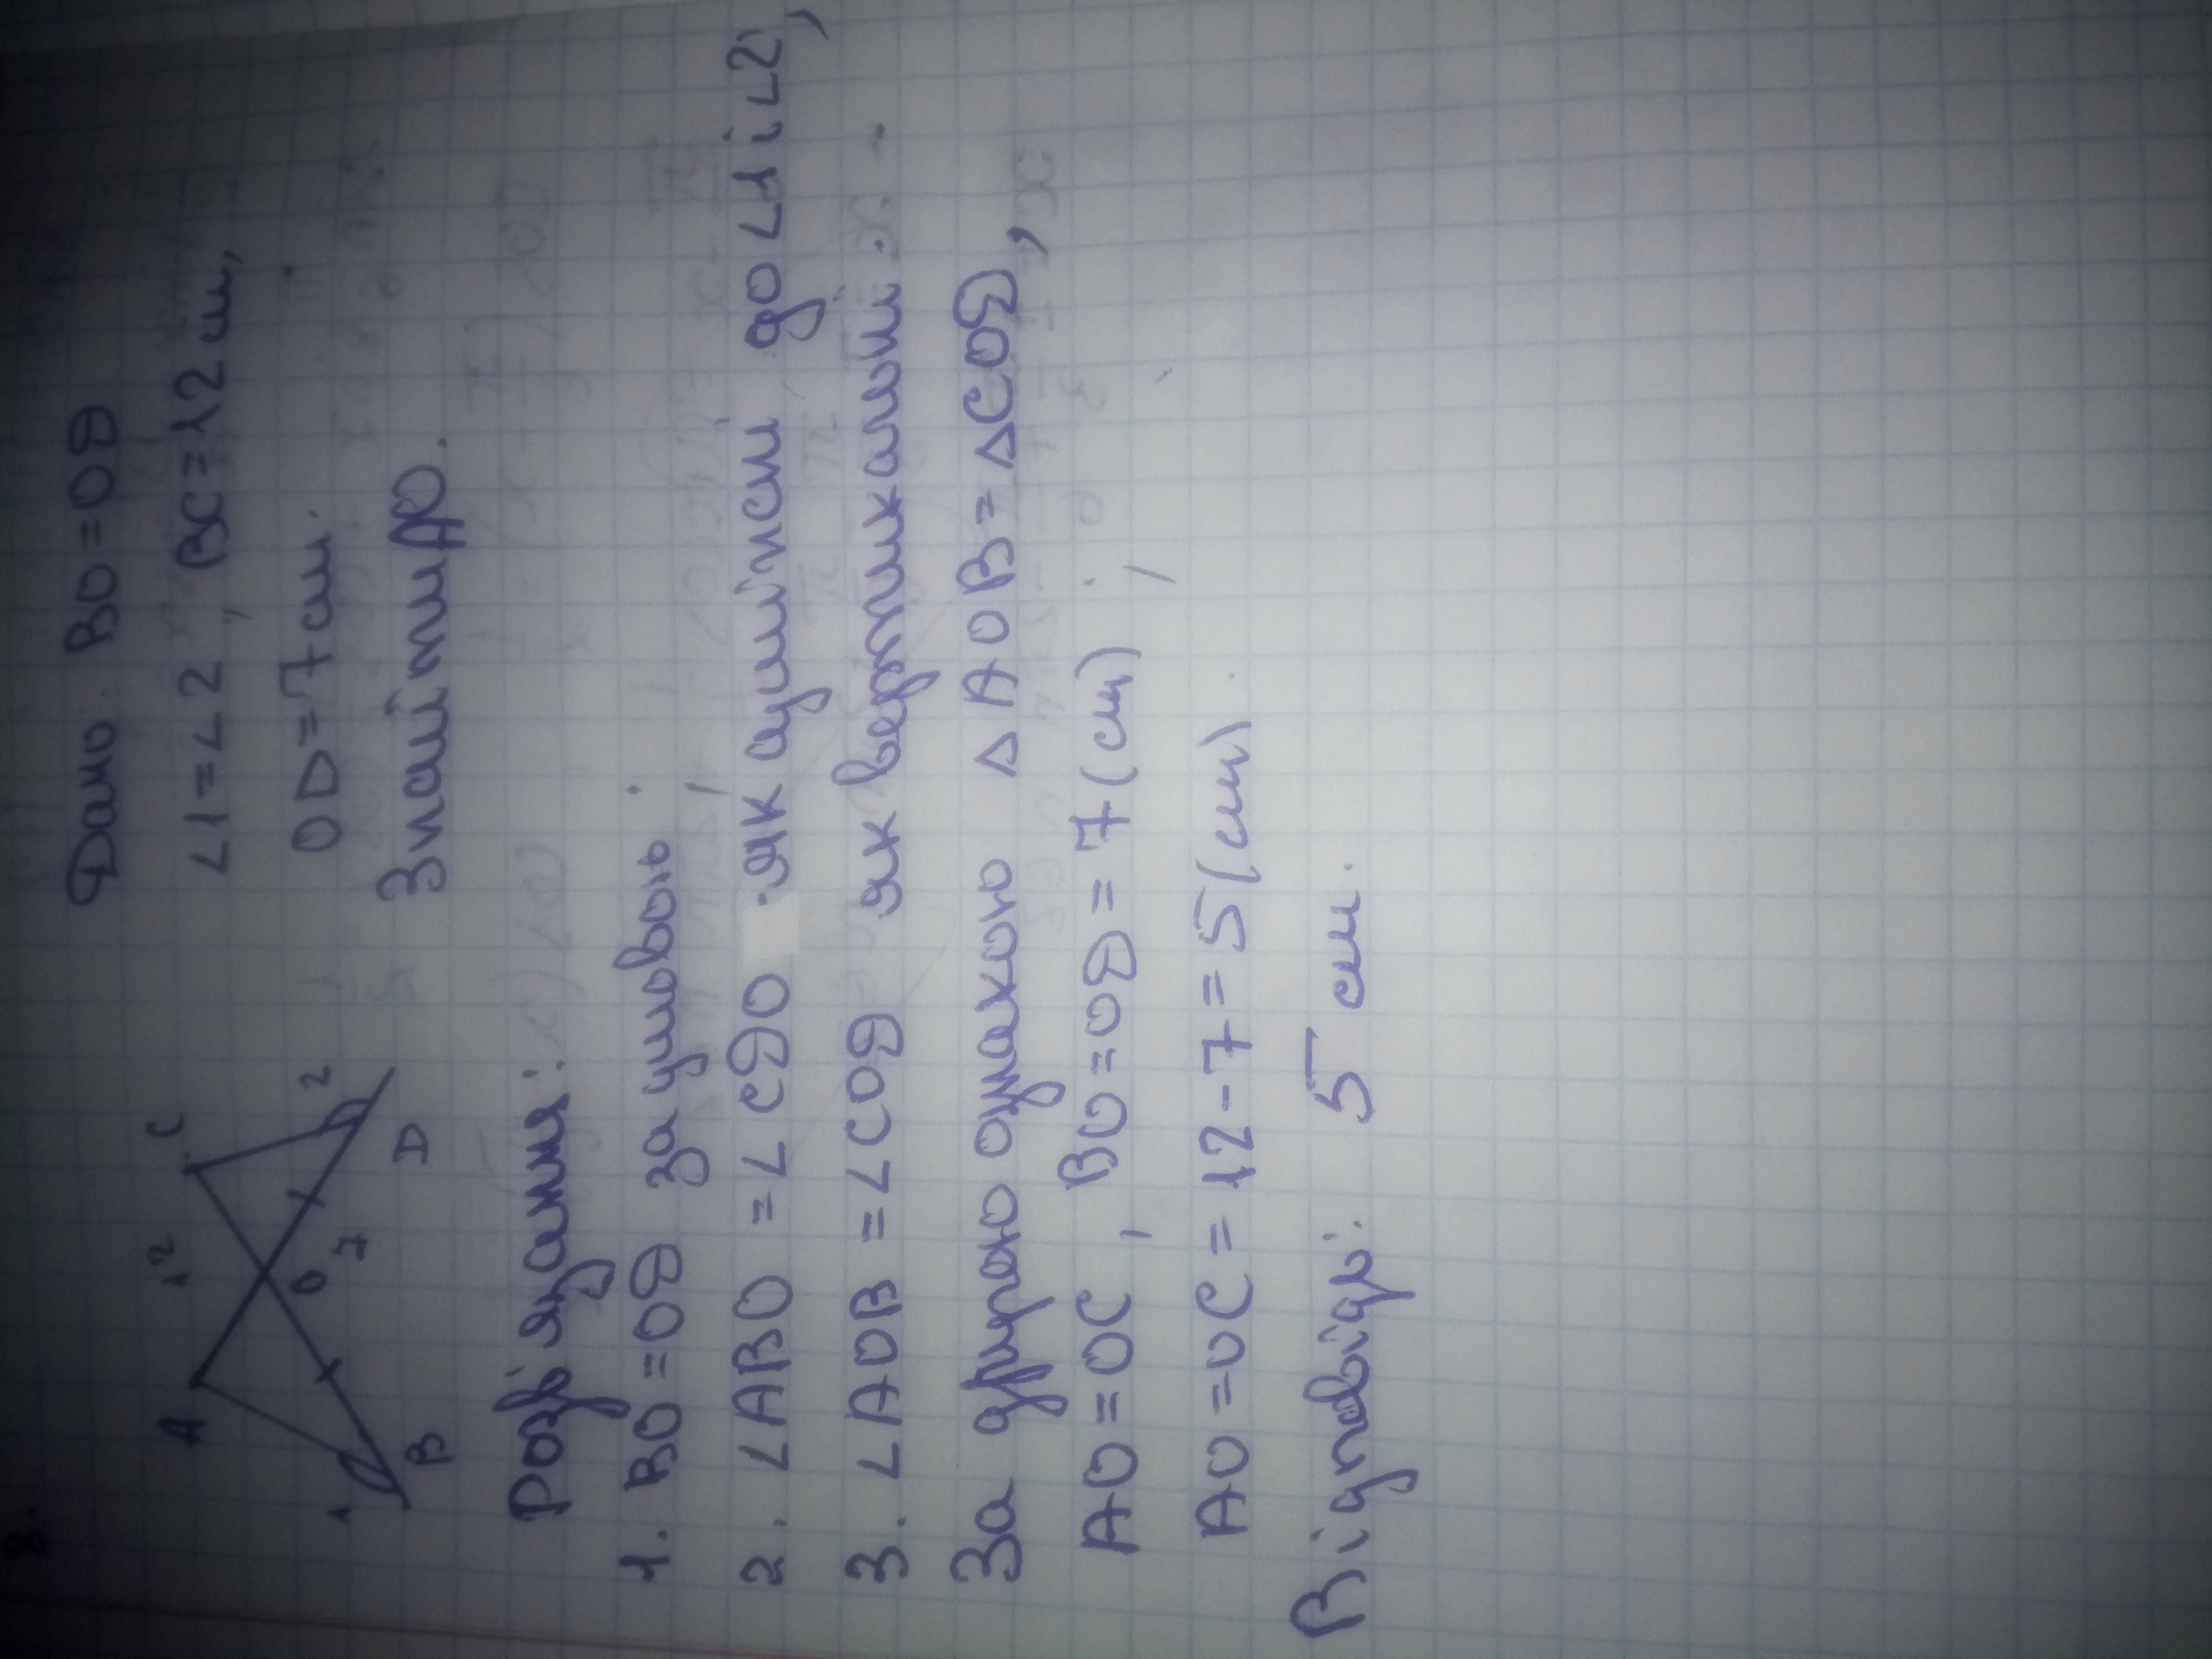 8.
A
C
12
1
2
O
7
B
D
Дано: BO=OД
∠1=∠2, BC=12 см,
OD=7см.
Знайти AO.
Розв'язання:
1. BO=OД за умовою;
2. ∠ABO =∠CДO як суміжні до ∠1 і ∠2,
3. ∠AOB =∠COД як вертикальні.
За другою ознакою ΔAOB=ΔCOД,
AO=OC, BO=OД=7(см);
AO=OC=12-7=5(см).
Відповідь: 5 см.